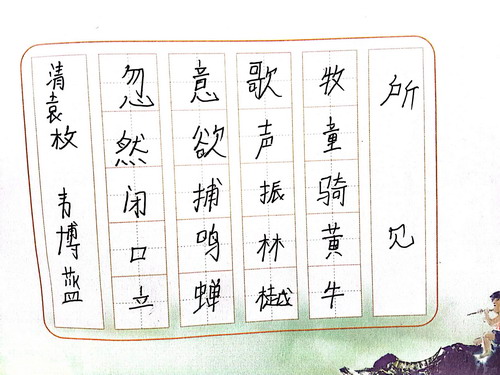 所见
牧童骑黄牛
歌声振林樾
意欲捕鸣蝉
忽然闭口立
清袁枚 韦博蓝